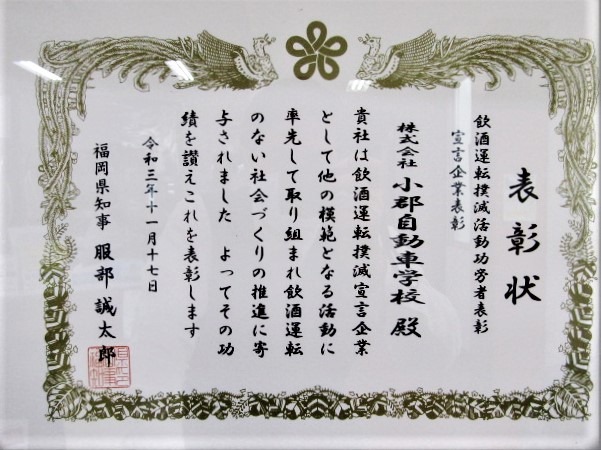 表彰状
飲酒運転撲滅活動功労者表彰
宣言企業表彰
株式会社 小郡自動車学校 殿
貴社は飲酒運転撲滅宣言企業
として他の模範となる活動に
率先して取り組まれ飲酒運転
のない社会づくりの推進に寄
与されました よってその功
績を讃えこれを表彰します
令和三年十一月十七日
福岡県知事 服部誠太郎